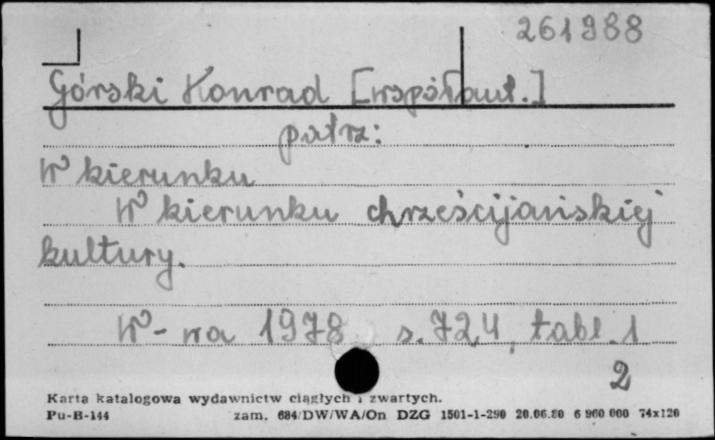 261988
Górski Konrad [współaut.]
patrz:
W kierunku
W kierunku chrześcijańskiej
kultury.
W-wa 1978 s. 724, tabl. 1
2
Karta katalogowa wydawnictw ciągłych i zwartych.
Pu-B-144 zam. 684/DW/WA/On DZG 1501-1-290 20.06.80 6 960 000 74x120